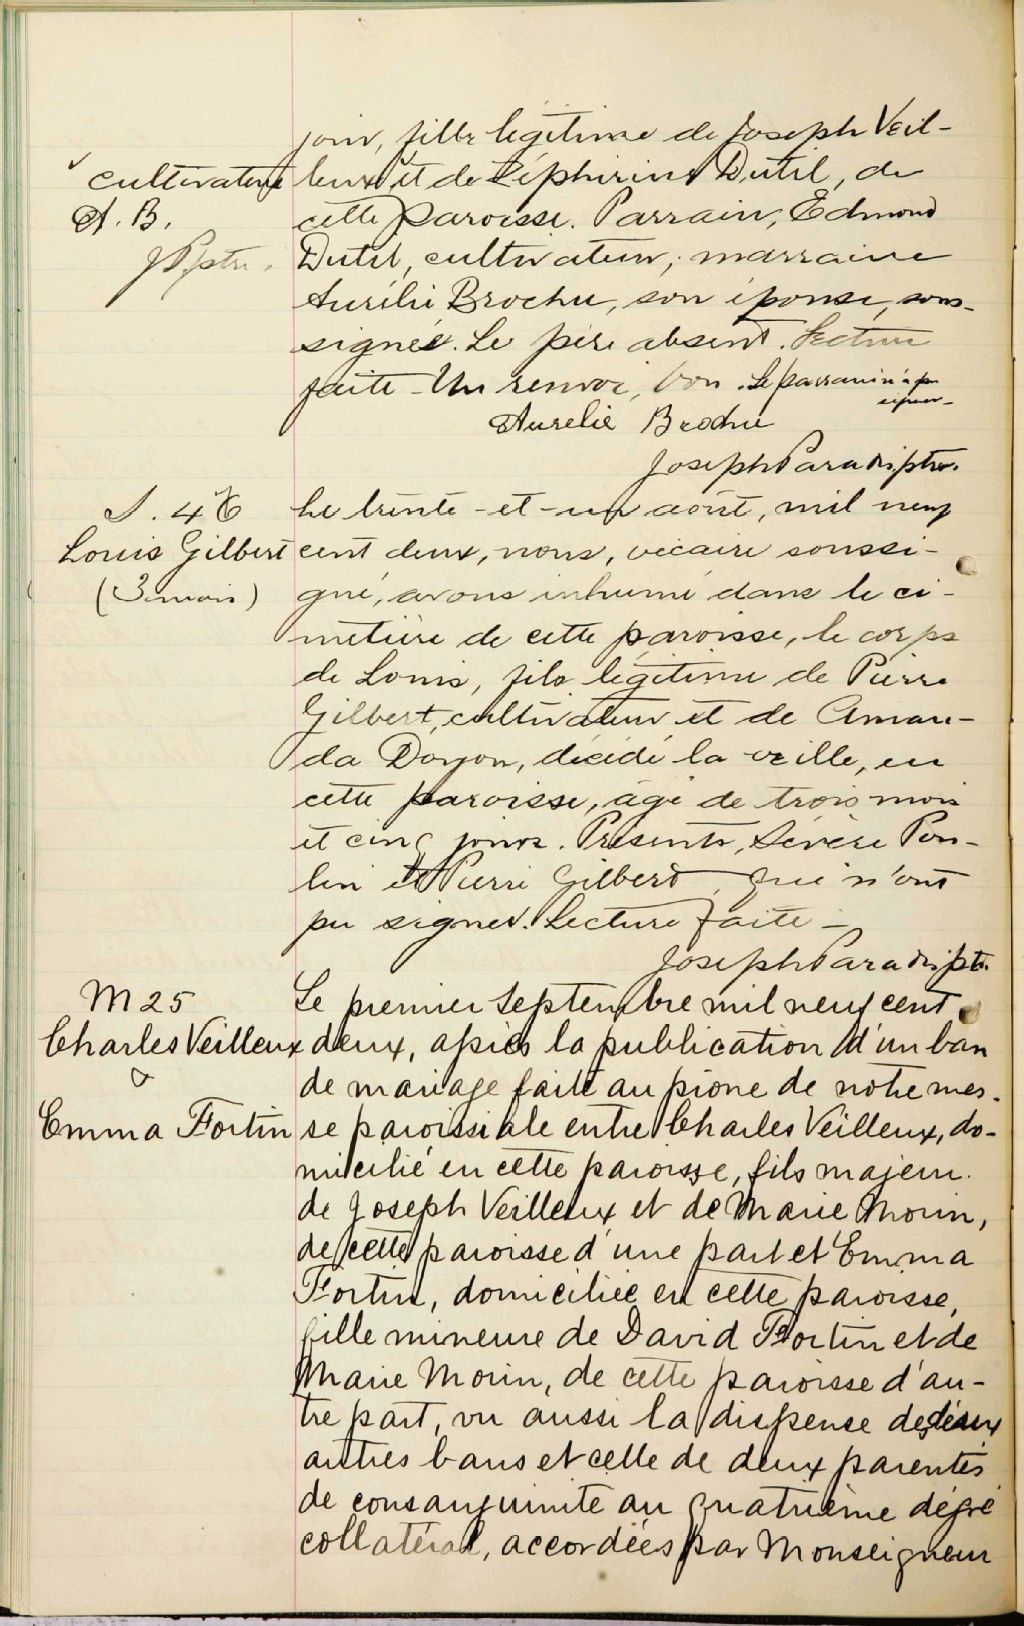 jour, fille légitime de Joseph Veil-
cultivateur
A. B.
J P ptre.
leux et de Zéphirine Dutil, de
cette paroisse. Parrain, Edmond
Dutil, cultivateur; marraine
Aurélie Brochu, son épouse, sous-
signée. Le père absent. Lecture
faite - Un renvoi, bon. Le parrain n'a pu
signer -
Aurelie Brochu
Joseph Paradis ptre.
S. 46
Louis Gilbert
(3 mois)
Le trente-et-un août, mil neuf
cent deux, nous, vicaire soussi-
gné, avons inhumé dans le ci-
metière de cette paroisse, le corps
de Louis, fils légitime de Pierre
Gilbert, cultivateur et de Aman-
da Doyon, décédé la veille, en
cette paroisse, âgé de trois mois
et cinq jours. Présents, Sévère Pou-
lin et Pierre Gilbert, qui n'ont
pu signer. Lecture faite -
Joseph Paradis ptr.
M 25
Charles Veilleux
&
Emma Fortin
Le premier septembre mil neuf cent
deux, après la publication d'un ban
de mariage faite au prone de notre mes-
se paroissiale entre Charles Veilleux, do-
micilié en cette paroisse, fils majeur
de Joseph Veilleux et de Marie Morin,
de cette paroisse d'une part et Emma
Fortin, domiciliée en cette paroisse,
fille mineure de David Fortin et de
Marie Morin, de cette paroisse d'au-
tre part, vu aussi la dispense de deux
autres bans et celle de deux parentés
de consanguinité au quatrième dégré
collatéral, accordées par Monseigneur